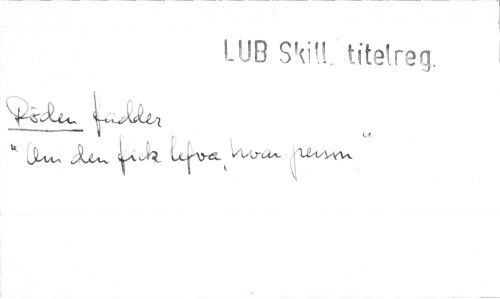 LUB Skill. titelreg.
Döden fadder
"Om den fick lefva, hvar person"